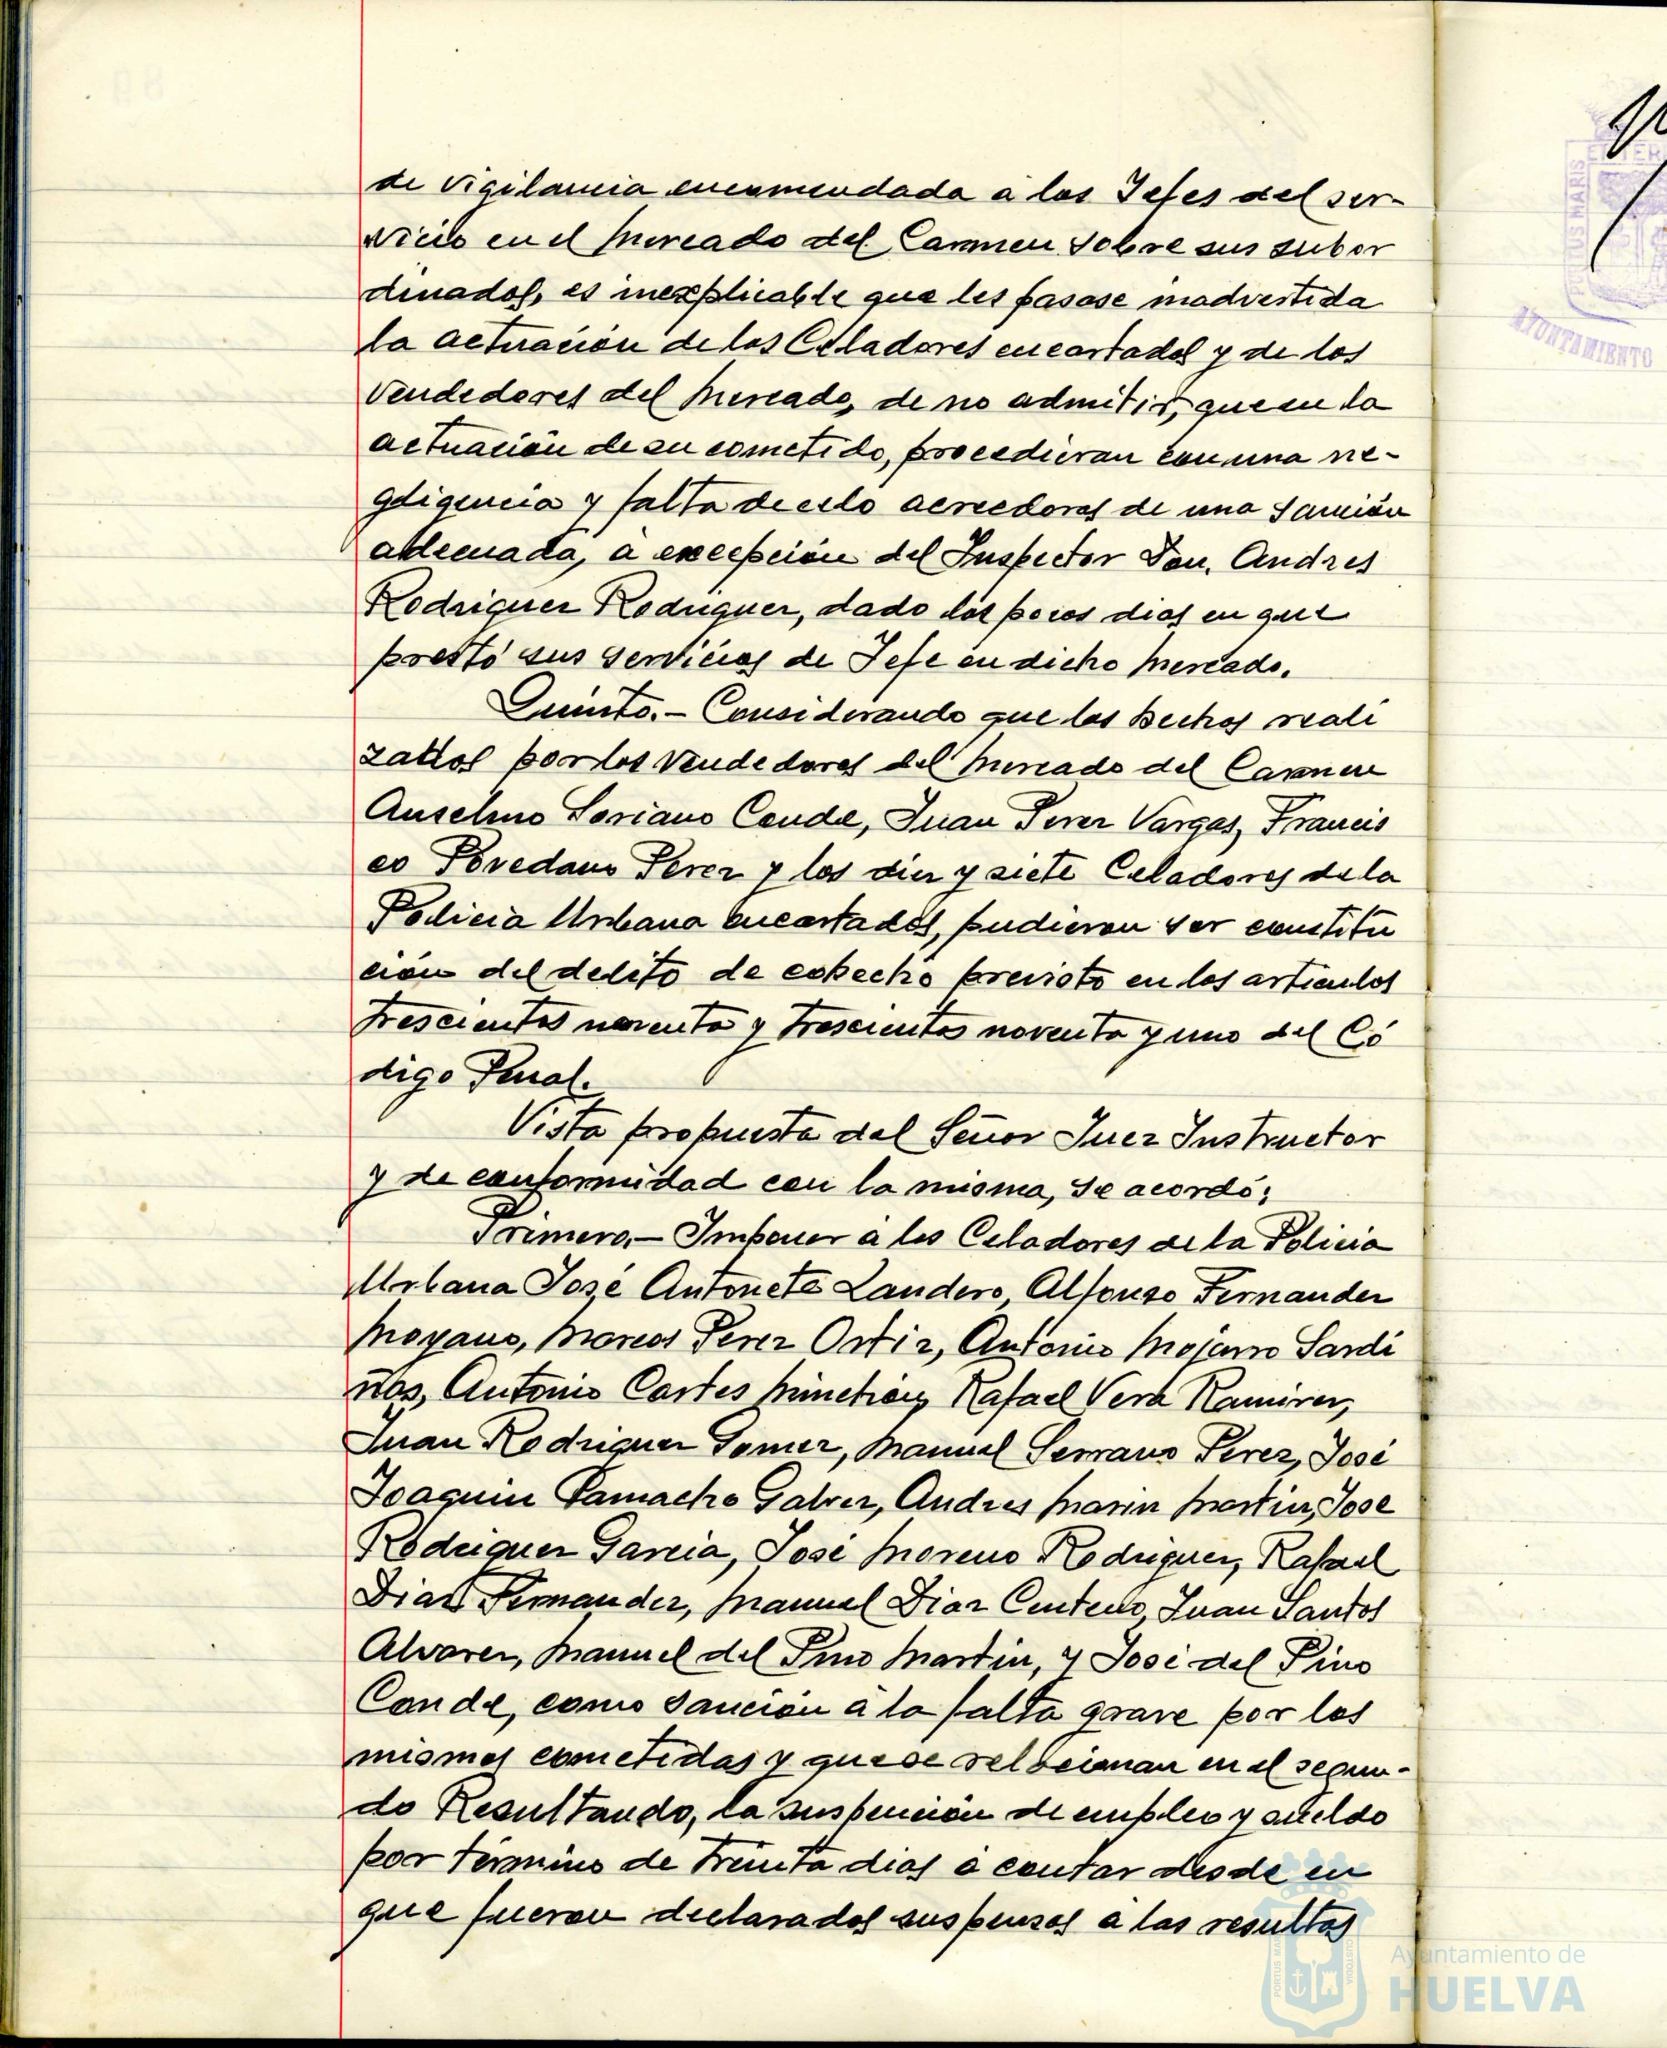 de vigilancia encomendada a los Jefes del ser-
vicio en el Mercado del Carmen sobre sus subor
dinados, es inexplicable que les pasase inadvertida
la actuación de los Celadores encartados y de los
vendedores del Mercado, de no admitir, que en la
actuación de su cometido, procedieran con una ne-
gligencia y falta de celo acreedoras de una sanción
adecuada, a excepción del Inspector Don, Andres
Rodriguez Rodriguez, dado los pocos dias en que
prestó sus servicios de Jefe en dicho Mercado.
Quinto.- Considerando que los hechos reali
zados por los vendedores del Mercado del Carmen
Anselmo Soriano Conde, Juan Perez Vargas, Francis
co Povedano Perez y los diez y siete Celadores de la
Policia Urbana encartados, pudieran ser constitu
ción del delito de cohecho previsto en los articulos
trescientos noventa y trescientos noventa y uno del Có
digo Penal.
Vista propuesta del Señor Juez Instructor
y de conformidad con la misma, se acordó:
Primero.- Imponer a los Celadores de la Policia
Urbana José Antonete Landero, Alfonso Fernandez
Moyano, Marcos Perez Ortiz, Antonio Mojarro Sardi
ñas, Antonio Cortes Minchón, Rafael Vera Ramirez,
Juan Rodriguez Gomez, Manuel Serrano Perez, José
Joaquin Camacho Galvez, Andres Marin Martin, Jose
Rodriguez Garcia, José Moreno Rodriguez, Rafael
Diaz Fernandez, Manuel Diaz Centeno, Juan Santos
Alvarez, Manuel del Pino Martin, y José del Pino
Conde, como sanción a la falta grave por los
mismos cometidas y que se relacionan en el segun-
do Resultando, la suspensión de empleo y sueldo
por término de treinta dias a contar desde en
que fueron declarados suspensos a las resultas
PORTUS MARIS
AYUNTAMIENTO
Ayuntamiento de
HUELVA